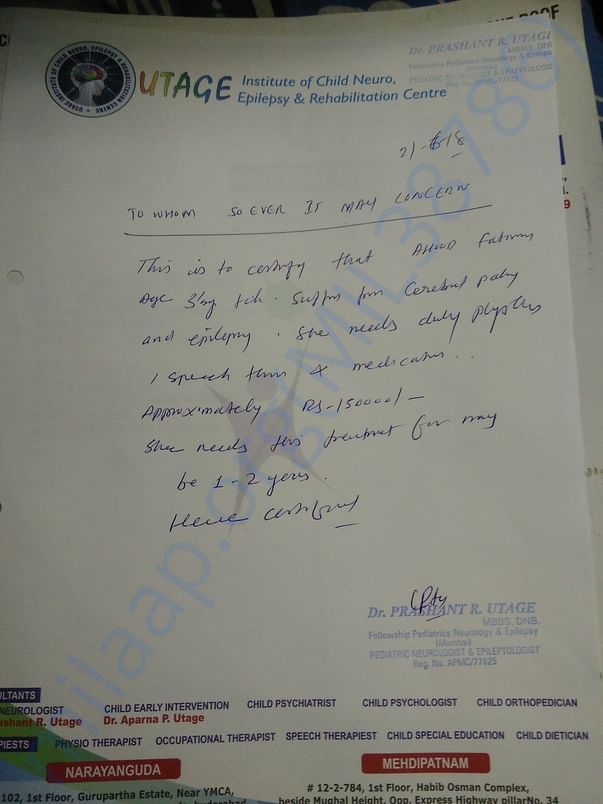 Dr. PRASHANT R. UTAGE
MBBS, DNB
Fellowship Pediatrics Neurology & Epilepsy
PEDIATRIC NEUROLOGIST & EPILEPTOLOGIST
Reg. No. APMC/77825
UTAGE INSTITUTE OF CHILD NEURO, EPILEPSY & REHABILITATION CENTRE
UTAGE Institute of Child Neuro,
Epilepsy & Rehabilitation Centre
TO WHOM SO EVER IT MAY CONCERN
This is to certify that Fatima
Age
and epilepsy. She needs daily
/ speech &
Approximately RS-150000/-
She needs this treatment for may
be 1-2 years.
Hence certified
milaap.org/MIL38780
Dr. PRASHANT R. UTAGE
MBBS, DNB.
Fellowship Pediatrics Neurology & Epilepsy
(Mumbai)
PEDIATRIC NEUROLOGIST & EPILEPTOLOGIST
Reg. No. APMC/77825
ULTANTS
NEUROLOGIST CHILD EARLY INTERVENTION CHILD PSYCHIATRIST CHILD PSYCHOLOGIST CHILD ORTHOPEDICIAN
ashant R. Utage Dr. Aparna P. Utage
PIESTS PHYSIO THERAPIST OCCUPATIONAL THERAPIST SPEECH THERAPIEST CHILD SPECIAL EDUCATION CHILD DIETICIAN
NARAYANGUDA MEHDIPATNAM
102, 1st Floor, Gurupartha Estate, Near YMCA,
# 12-2-784, 1st Floor, Habib Osman Complex,
beside Mughal Height, Opp. Express Highway pillarNo. 34